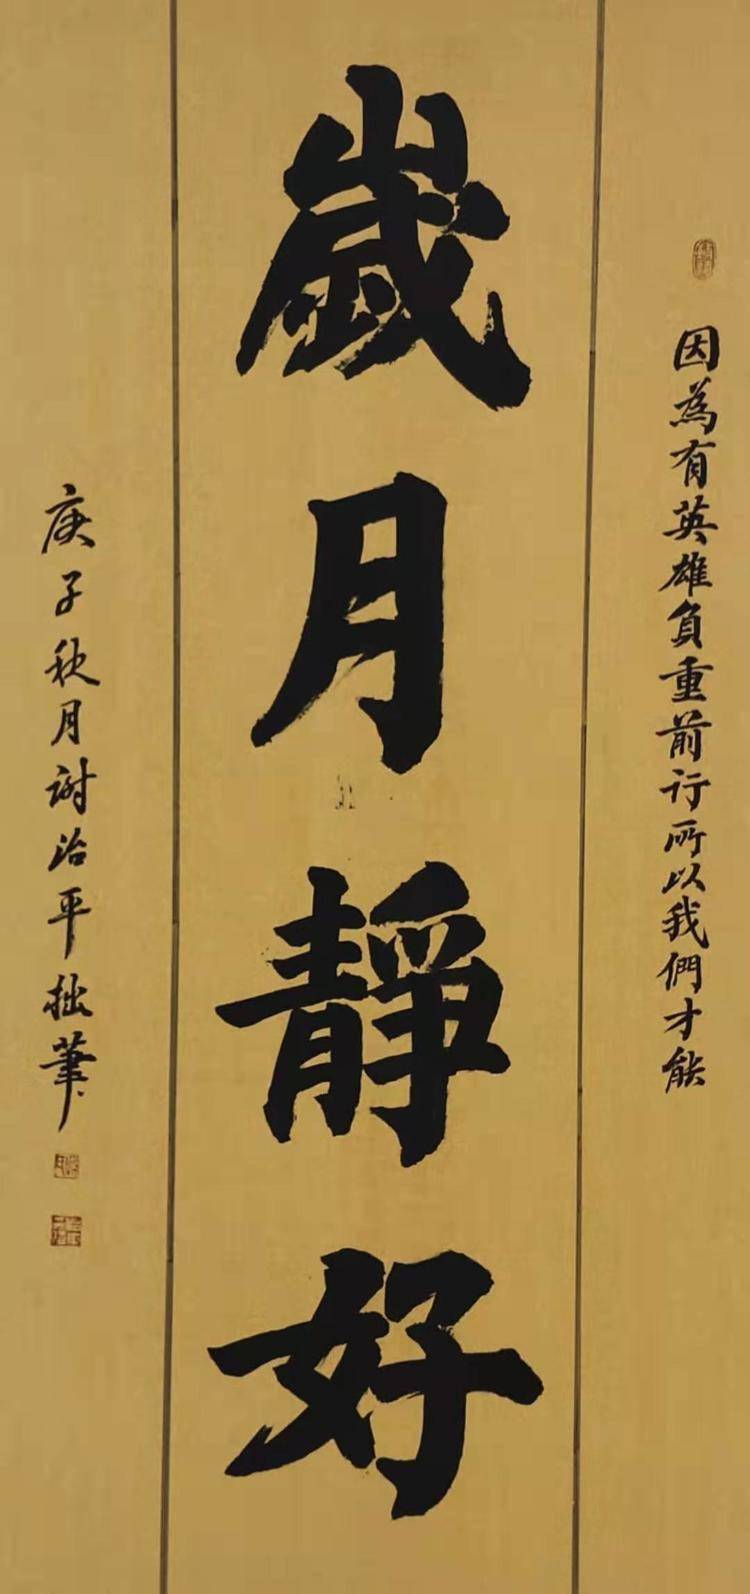 因為有英雄負重前行所以我們才能
歲月靜好
庚子秋月謝治平拙筆